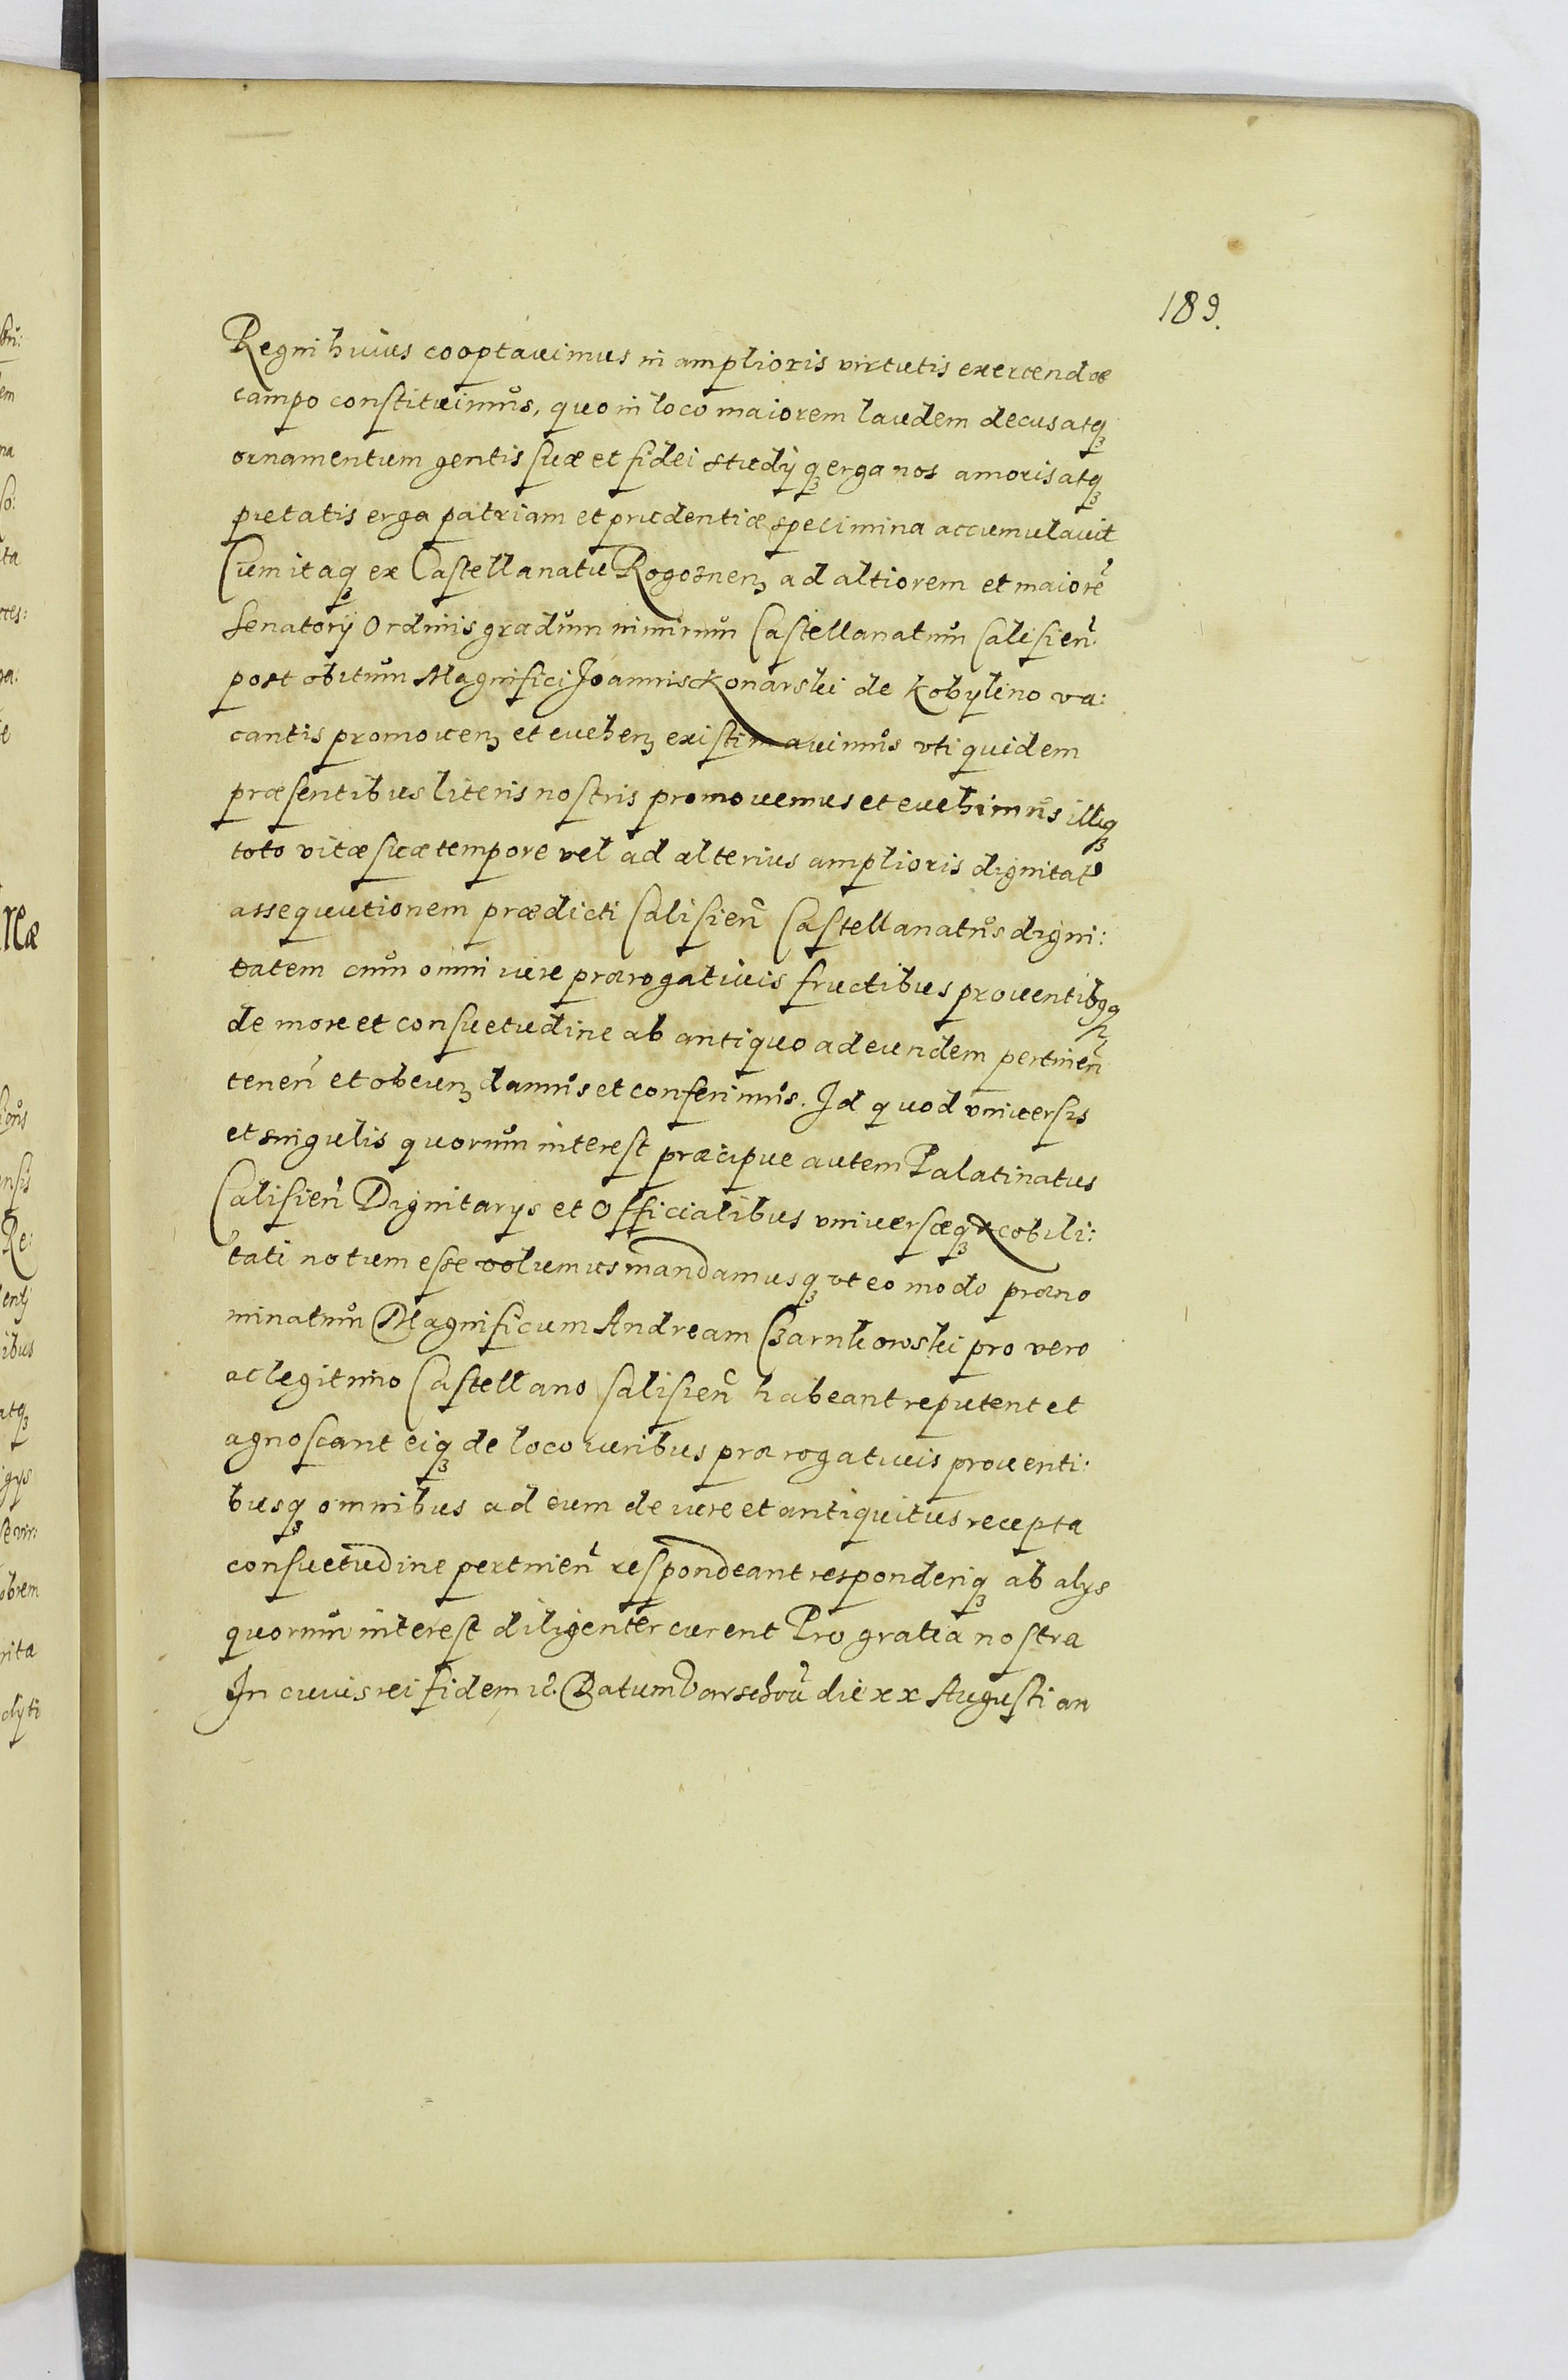 189.
Regni huius cooptauimus in amplioris virtutis exercendæ
campo constituimus, quo in loco maiorem laudem decus atq
ornamentum gentis suæ et fidei studÿ q erga nos amoris atq
pietatis erga patriam et prudentiæ specimina accumulauit
Cum itaq ex Castellanatu Rogosnenʒ ad altiorem et maiorē
Senatorÿ Ordinis gradum nimirum Castellanatum Calisien̄
post obitum Magnifici Joannis Konarski de Kobÿlino va:
cantis promouenʒ et euehenʒ existimauimus vti quidem
præsentibus literis nostris promouemus et euehimus illiq
toto vitæ suæ tempore vel ad alterius amplioris dignitat
assequutionem prædicti Calisien̄ Castellanatus digni:
tatem cum omni iure prærogatiuis fructibus prouentibqȝ
de more et consuetudine ab antiquo ad eundem pertinen̄
tenen̄ et obeunʒ damus et conferimus. Id quod vniuersis
et singulis quorum interest præcipue autem Palatinatus
Calisien̄ Dignitarÿs et Officialibus vniuersæq Nobili:
tati notum esse volumus mandamusq vt eo modo præno
minatum Magnificum Andream Czarnkowski pro vero
ac legitimo Castellano Calisien̄ habeant reputent et
agnoscant eiq de loco iuribus prærogatiuis prouenti:
busq omnibus ad eum de iure et antiquitus recepta
consuetudine pertinen̄ respondeant responderiq ab alÿs
quorum interest diligenter curent Pro gratia nostra
In cuius rei fidem &c. Datum Varschou̅ die xx Augusti an